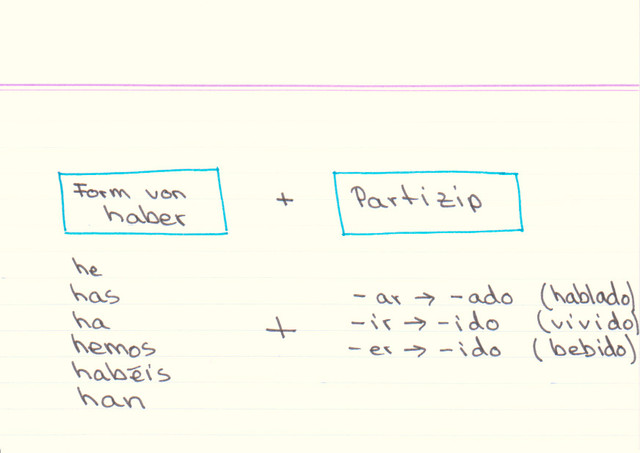 Form von + Partizip
haber
he
has - ar → - ado (hablado)
ha + - ir → - ido (vivido)
hemos - er → - ido (bebido)
habéis
han